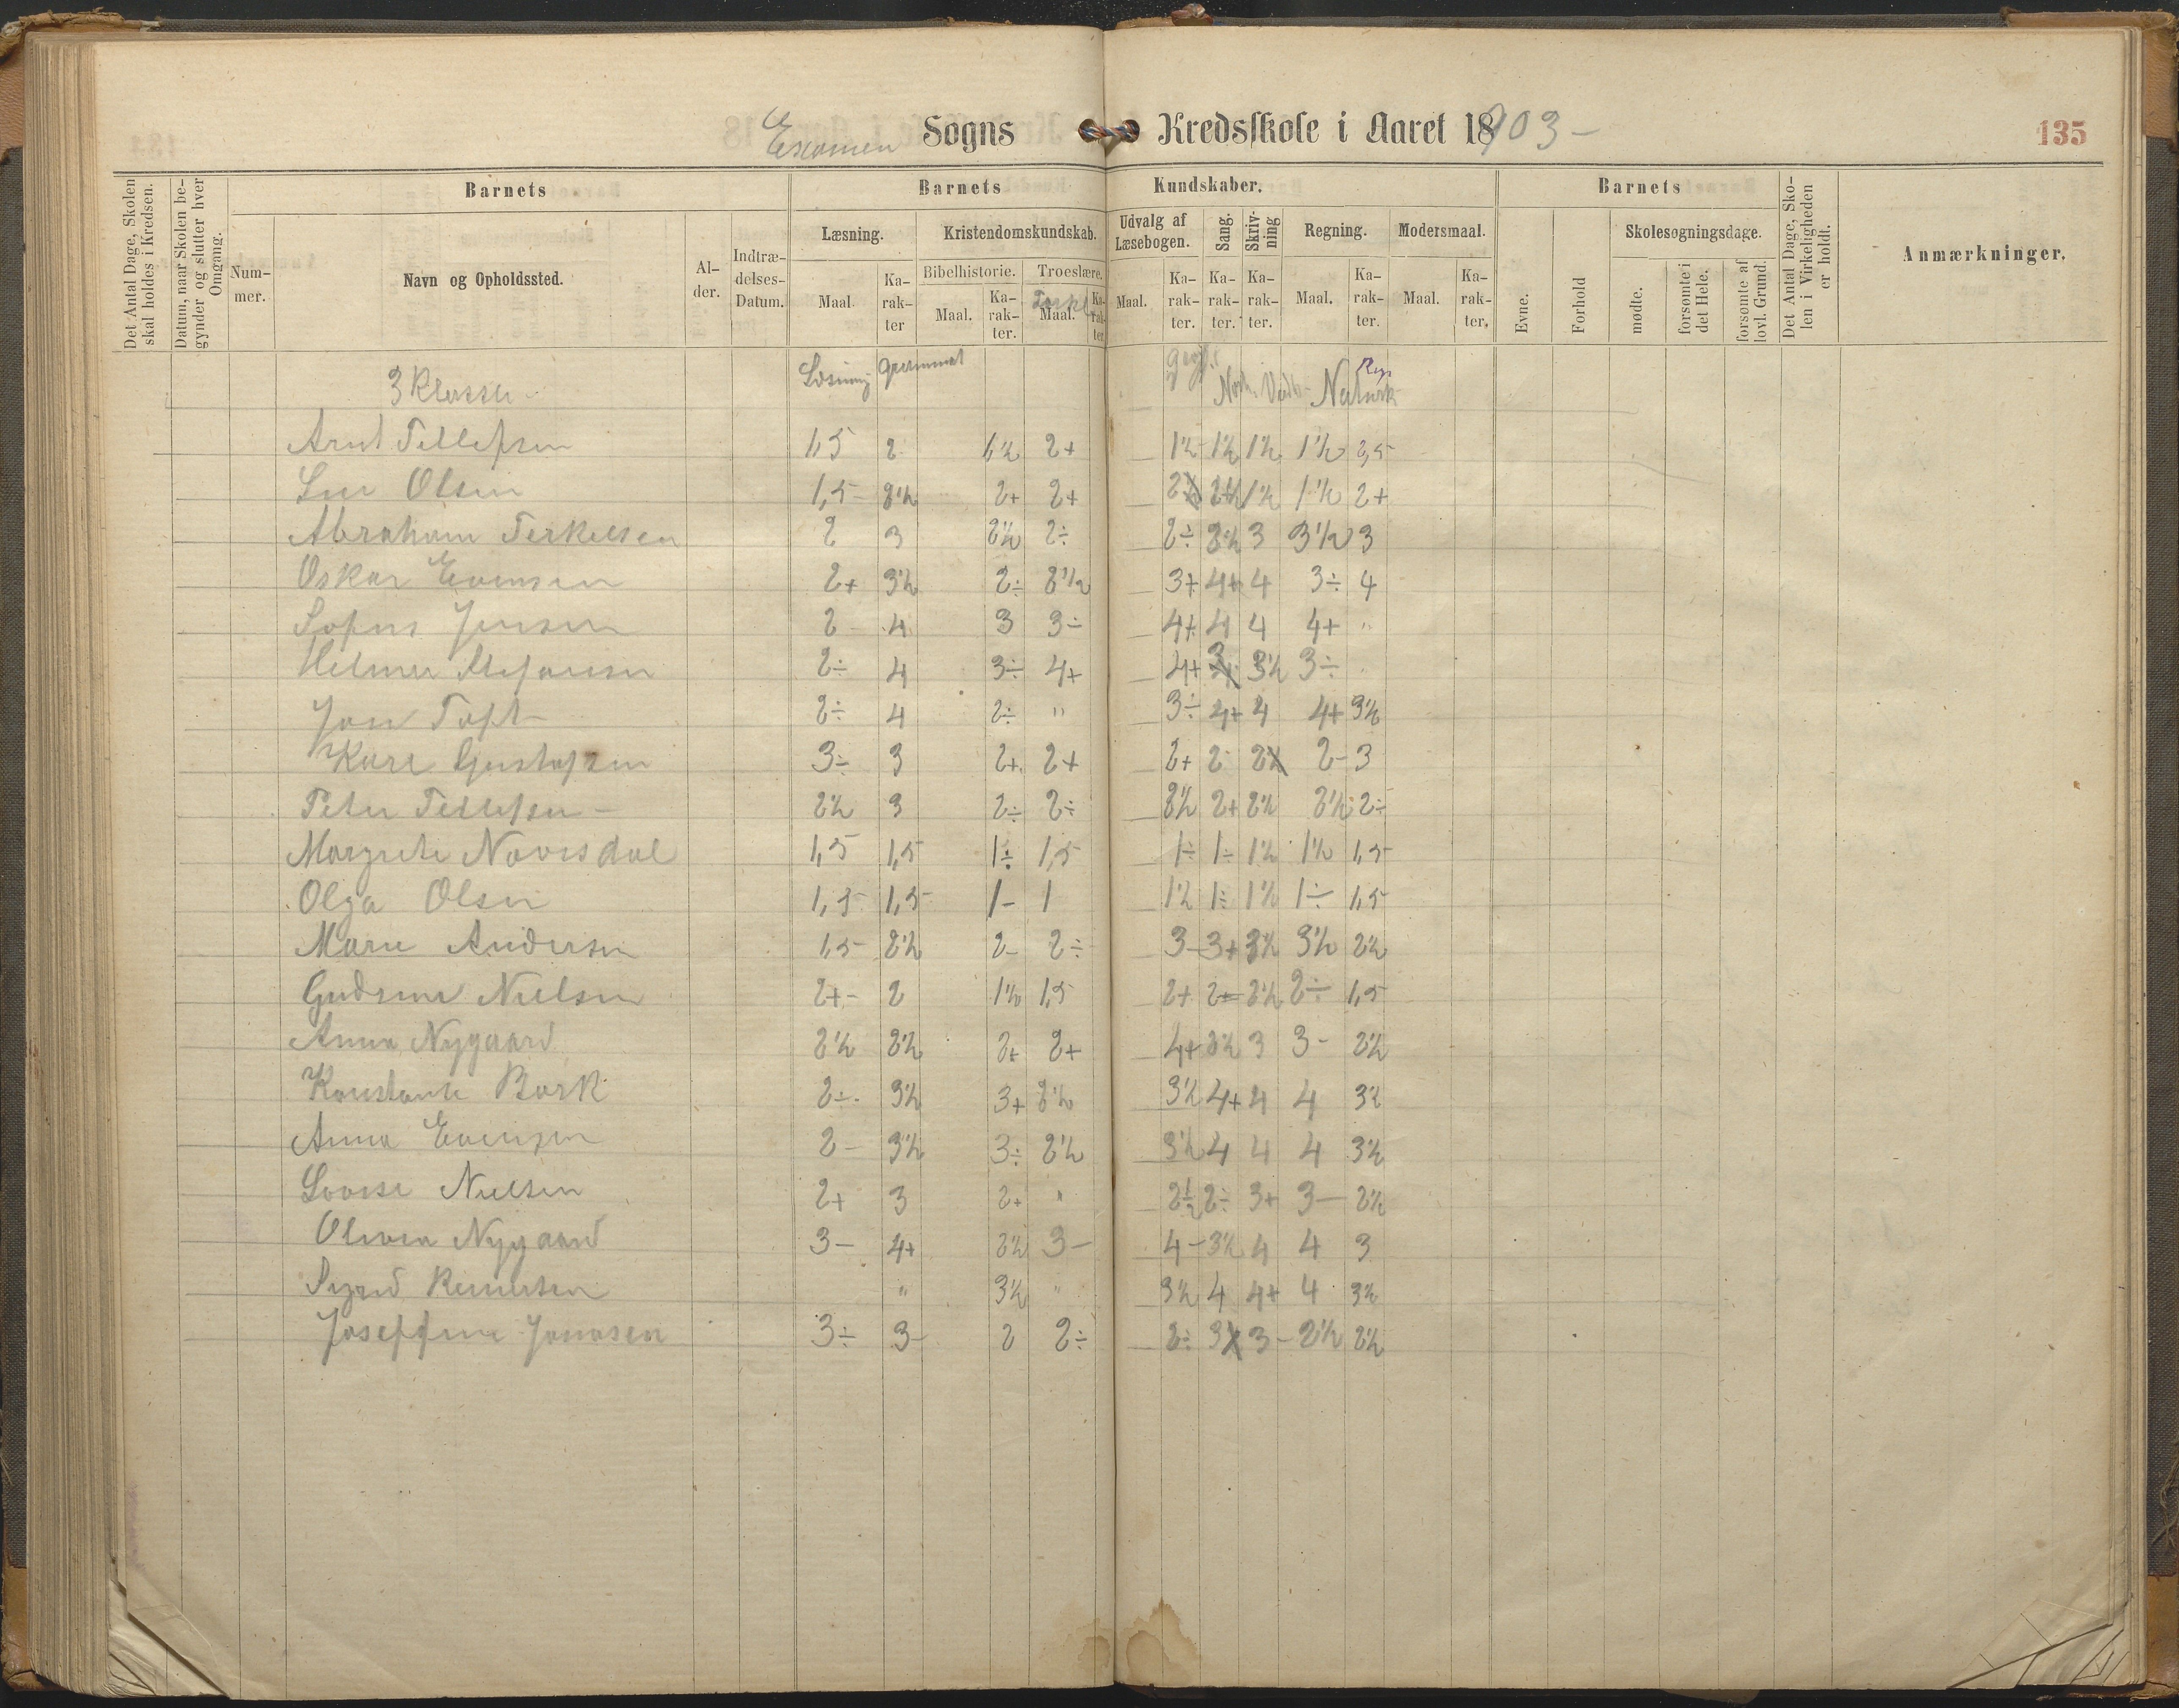 Examen Sogns Kredsskole i Aaret 18903 – 135
Det Antal Dage, Skolen skal holdes i Kredsen.
Datum, naar Skolen begynder og slutter hver Omgang.
Barnets
Nummer.
Navn og Opholdssted.
Alder.
Indtrædelses-Datum.
Barnets Kundskaber.
Læsning.
Maal.
Karakter
Kristendomskundskab.
Bibelhistorie.
Maal.
Karakter.
Troeslære.
Maal.
Karakter
Udvalg af Læsebogen.
Maal.
Karakter.
Sang.
Karakter.
Skrivning
Karakter.
Regning.
Maal.
Karakter.
Modersmaal.
Maal.
Karakter.
Barnets
Evne.
Forhold
Skolesøgningsdage.
mødte.
forsømte i det Hele.
forsømte af lovl. Grund.
Det Antal Dage, Skolen i Virkeligheden er holdt.
Anmærkninger.
3 Klasse Læsning Grammat Geogr. Norh. Verdh- Naturk Reg
Arnt Tellefsen 1,5 2 1½ 2+ 1½ 1½ 1½ 1½ 2,5
Olsen 1,5 2½ 2+ 2+ 2 2½ 1½ 1½ 2+
Abraham Terkelsen 2 3 2½ 2÷ 2÷ 3½ 3 3½ 3
Oskar Evensen 2+ 3½ 2÷ 2½ 3+ 4+ 4 3÷ 4
Sofus Jensen 2 4 3 3÷ 4+ 4 4 4+ "
Helmer Stefansen 2÷ 4 3÷ 4+ 4+ 3 3½ 3÷
Jon Toft 2÷ 4 2÷ " 3÷ 4+ 4 4+ 3½
Karl Gustafsen 3÷ 3 2+ 2+ 2+ 2 2 2- 3
Peter Tellefsen 2½ 3 2÷ 2÷ 2½ 2+ 2½ 2½ 2÷
Margrete Navesdal 1,5 1,5 1÷ 1,5 1÷ 1÷ 1½ 1½ 1,5
Olga Olsen 1,5 1,5 1- 1 1½ 1÷ 1½ 1÷ 1,5
Marie Andersen 1,5 2½ 2- 2÷ 3- 3+ 3½ 3½ 2½
Gudrun Nielsen 2+ 2 1½ 1,5 2+ 2+ 2½ 2÷ 1,5
Anna Nygaard 2½ 2½ 2+ 2+ 4+ 3½ 3 3- 2½
Konstanse Bork 2÷ 3½ 3+ 2½ 3½ 4+ 4 4 3½
Anna Evensen 2- 3½ 3÷ 2½ 3½ 4 4 4 3½
Lovise Nielsen 2+ 3 2+ " 2½ 2÷ 3+ 3- 2½
Olivia Nygaard 3- 4+ 2½ 3- 4- 3½ 4 4 3
Sigrid Knudsen " 3½ " 3½ 4 4+ 4 3½
Josefine Jonasen 3÷ 3- 2 2÷ 2÷ 3 3- 2½ 2½